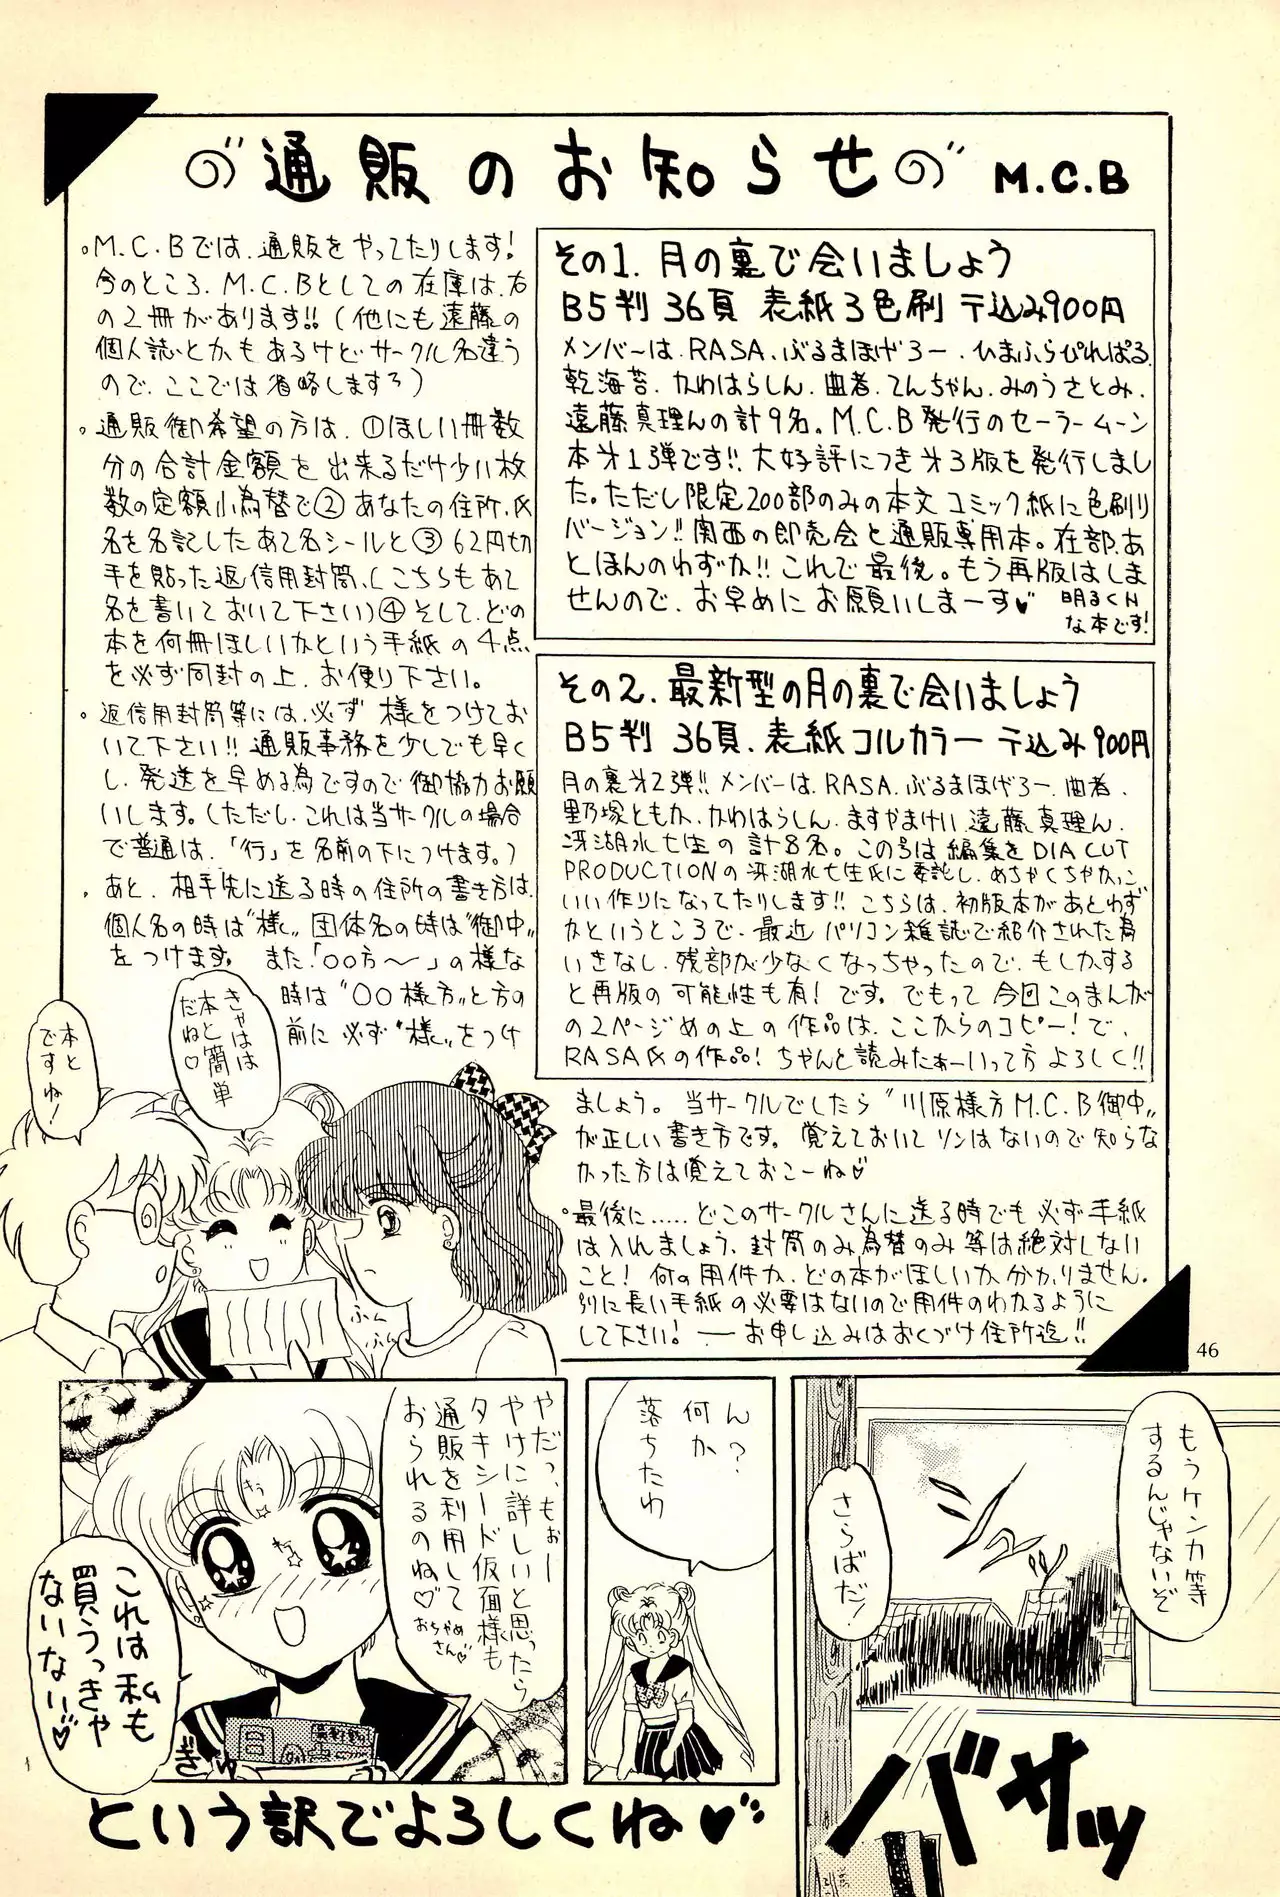 通販のお知らせ M.C.B
。M.C.Bでは、通販をやってたりします!
今のところ、M.C.Bとしての在庫は、右
の2冊があります!!(他にも遠藤の
個人誌とかもあるけどサークル名違う
ので、ここでは省略しますろ)
。通販御希望の方は、①ほしい冊数
分の合計金額を出来るだけ少い枚
数の定額小為替で②あなたの住所、氏
名を名記したあて名シールと③62円切
手を貼った返信用封筒、(こちらもあて
名を書いておいて下さい)④そして、どの
本を何冊ほしいかという手紙の4点
を必ず同封の上、お便り下さい。
。返信用封筒等には、必ず 様をつけてお
いて下さい!!通販事務を少しでも早く
し、発送を早める為ですので御協力お願
いします。(ただし、これは当サークルの場合
で普通は、「行」を名前の下につけます。)
。あと、相手先に送る時の住所の書き方は、
個人名の時は"様"、団体名の時は"御中"
をつけます。また「〇〇方〜」の様な
時は"〇〇様方"と方の
前に必ず"様"をつけ
その1. 月の裏で会いましょう
B5判 36頁 表紙3色刷 〒込み900円
メンバーは、RASA、ぶるまほげろー、ひまふらぴれぱる、
乾海苔、かわはらしん、曲者、てんちゃん、みのうさとみ、
遠藤真理んの計9名。M.C.B発行のセーラームーン
本才1弾です!!大好評につき才3版を発行しまし
た。ただし限定200部のみの本文コミック紙に色刷り
バージョン!!関西の即売会と通販専用本。在部、あ
とほんのわずか!!これで最後。もう再版はしま
せんので、お早めにお願いしまーす♡ 明るくH
な本です!
その2. 最新型の月の裏で会いましょう
B5判 36頁、表紙コルカラー 〒込み900円
月の裏才2弾!!メンバーは、RASA、ぶるまほげろー、曲者、
里乃塚ともか、かわはらしん、ますやまけい、遠藤真理ん、
冴湖水七生の計8名。この号は編集をDIA CUT
PRODUCTIONの冴湖水七生氏に委託し、めちゃくちゃかっこ
いい作りになってたりします!!こちらは、初版本があとわず
かというところで、最近パソコン雑誌で紹介された為
いきなし、残部が少なくなっちゃったので、もしかする
と再版の可能性も有!です。でもって今回このまんが
の2ページめの上の作品は、ここからのコピー!で、
RASA氏の作品!ちゃんと読みたぁーいって方よろしく!!
ましょう。当サークルでしたら"川原様方M.C.B御中"
が正しい書き方です。覚えておいてソンはないので知らな
かった方は覚えておこーね♡
。最後に……どこのサークルさんに送る時でも必ず手紙
は入れましょう、封筒のみ為替のみ等は絶対しない
こと!何の用件か、どの本がほしいか分かりません。
別に長い手紙の必要はないので用件のわかるように
して下さい!——お申し込みはおくづけ住所迄!!
きゃはは
本と簡単
だね♡
本と
ですね!
ふん
ふん
46
もうケンカ等
するんじゃないぞ
さらばだ!
バサッ
ん?
何か
落ちたわ
やだっ、もぉー
やけに詳しいと思ったら
タキシード仮面様も
通販を利用して
おられるのね♡
おちゃめ
さん♡
きら
きら
これは私も
買うっきゃ
ないない♡
ぎゅ
という訳でよろしくね♡